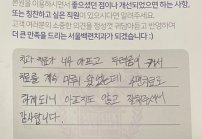 본원을 이용하시면서 좋으셨던 점이나 개선되었으면 하는 사항,
또는 칭찬하고 싶은 직원이 있으시다면 알려주세요.
고객 여러분의 소중한 의견을 정성껏 귀담아듣고 반영하여
더 큰 만족을 드리는 서울백련치과가 되겠습니다 :)
치과 치료가 너무 아프고 두려움이 커서
치료를 계속 미루다 왔었는데
아프지도 않고
감사합니다.